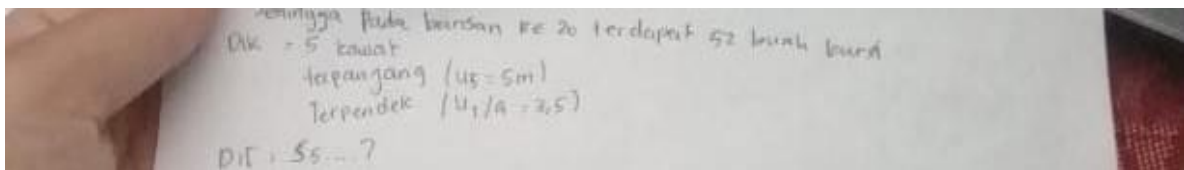 sehingga pada barisan ke 20 terdapat 52 buah kursi
Dik = 5 kawat
terpanjang (U5 = 5m)
Terpendek (U1/a = 2,5)
DIT : S5...?